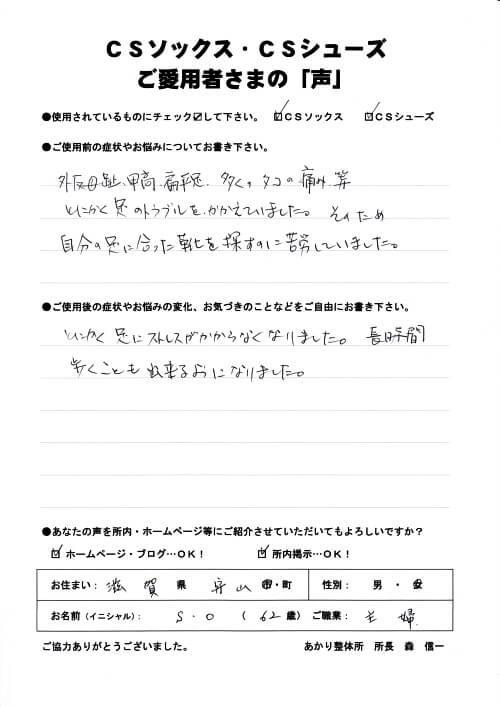 CSソックス・CSシューズ
ご愛用者さまの「声」
●使用されているものにチェック☑して下さい。 ☑CSソックス ☑CSシューズ
●ご使用前の症状やお悩みについてお書き下さい。
外反母趾、甲高、扁平足、多くのタコの痛み 等
とにかく足のトラブルをかかえていました。 そのため
自分の足に合った靴を探すのに苦労していました。
●ご使用後の症状やお悩みの変化、お気づきのことなどをご自由にお書き下さい。
とにかく足にストレスがかからなくなりました。 長時間
歩くことも出来るようになりました。
●あなたの声を所内・ホームページ等にご紹介させていただいてもよろしいですか？
☑ホームページ・ブログ…OK！ ☑所内掲示…OK！
お住まい： 滋賀 県 守山 市・町 性別： 男 ・ 女
お名前（イニシャル）： S.O （ 62 歳） ご職業： 主婦
ご協力ありがとうございました。 あかり整体所 所長 森 信一